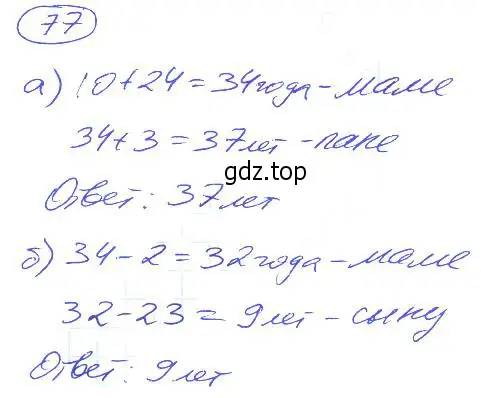 77
а) 10+24=34года-маме
34+3=37лет-папе
gdz.top
Ответ: 37лет
б) 34-2=32года-маме
32-23=9лет-сыну
Ответ: 9лет